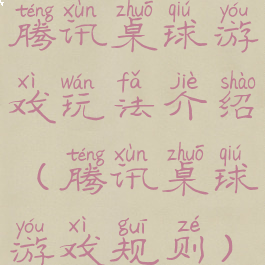 téng xùn zhuō qiú yóu
腾讯桌球游
xì wán fǎ jiè shào
戏玩法介绍
téng xùn zhuō qiú
(腾讯桌球
yóu xì guī zé
游戏规则)